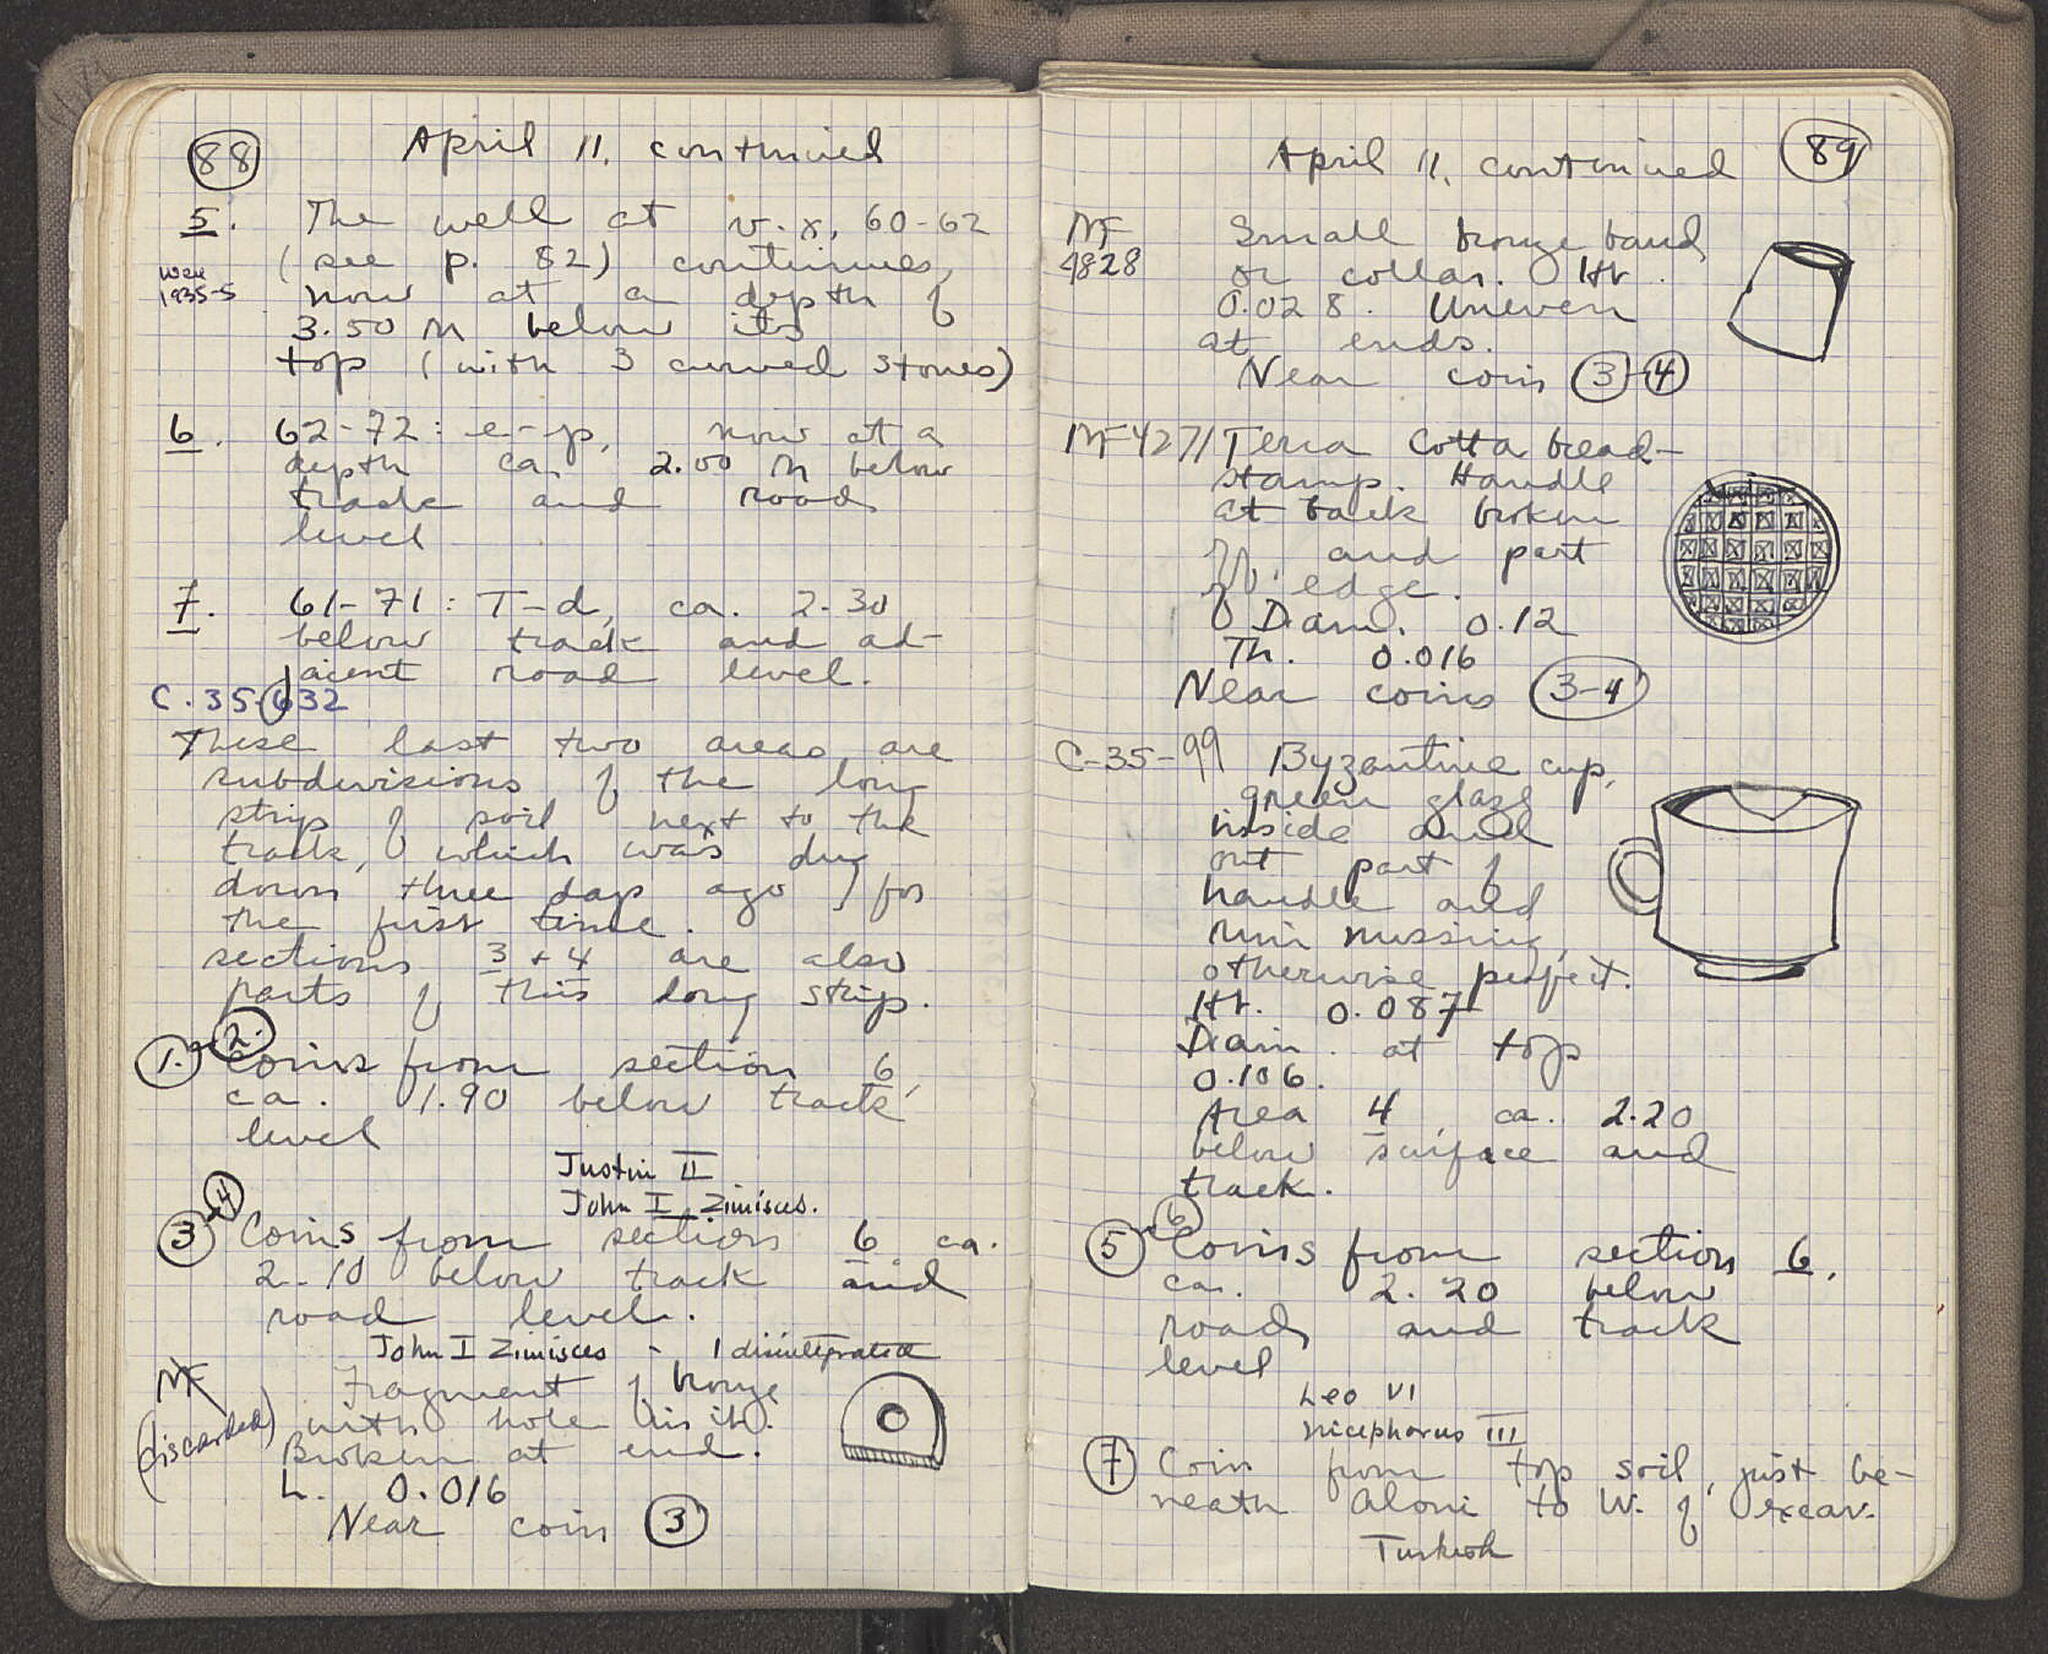 88
April 11, continued
5. The well at v-x, 60-62
(see p. 82) continues,
Well
1935-5
now at a depth of
3.50 m below its
top (with 3 curved stones)
6. 62-72: e-p, now at a
depth ca. 2.00 m below
track and road
level
7. 61-71: T-d, ca. 2.30
below track and ad-
jacent road level.
C.35-632
These last two areas are
subdivisions of the long
strip of soil next to the
track, which was dug
down three days ago for
the first time.
sections 3 + 4 are also
parts of this long strip.
1.-2. Coins from section 6,
ca. 1.90 below track
level
Justin II
John I Zimisces.
3-4 Coins from section 6 ca.
2.10 below track and
road level.
John I Zimisces - 1 disintegrated
MF
(discarded)
Fragment of bronze
with hole in it.
Broken at end.
L. 0.016
Near coin 3
89
April 11, continued
MF
4828
Small bronze band
or collar. Ht.
0.028. Uneven
at ends.
Near coin 3-4
MF 4271 Terra Cotta bread-
stamp. Handle
at back broken
off. and part
of edge.
Diam. 0.12
Th. 0.016
Near coins 3-4
C-35-99 Byzantine cup,
green glaze
inside and
out part of
handle and
rim missing,
otherwise perfect.
Ht. 0.087
Diam. at top
0.106.
Area 4, ca. 2.20
below surface and
track.
5-6 Coins from section 6.
ca. 2.20 below
road and track
level
Leo VI
Nicephorus III
7 Coin from top soil, just be-
neath Aloni to W. of excav.
Turkish